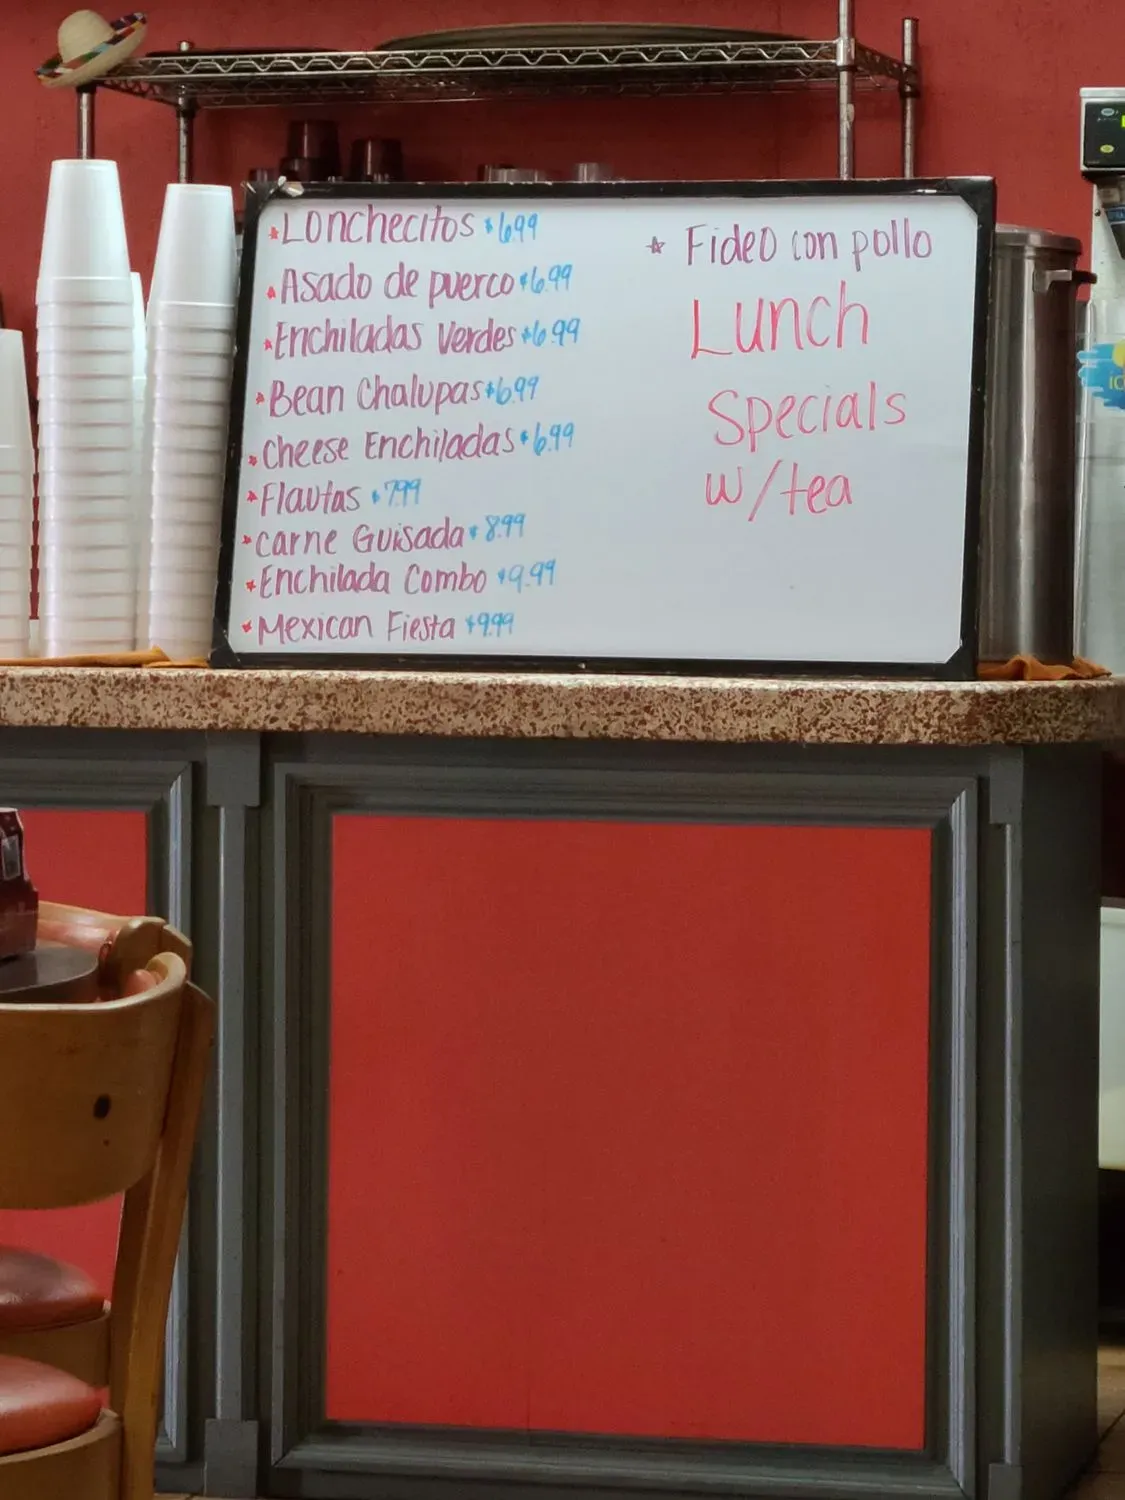 Lonchecitos $6.99
Asado de puerco $6.99
Enchiladas Verdes $6.99
Bean Chalupas $6.99
Cheese Enchiladas $6.99
Flautas $7.99
Carne Guisada $8.99
Enchilada Combo $9.99
Mexican Fiesta $9.99
Fideo con pollo
Lunch
Specials
w/tea